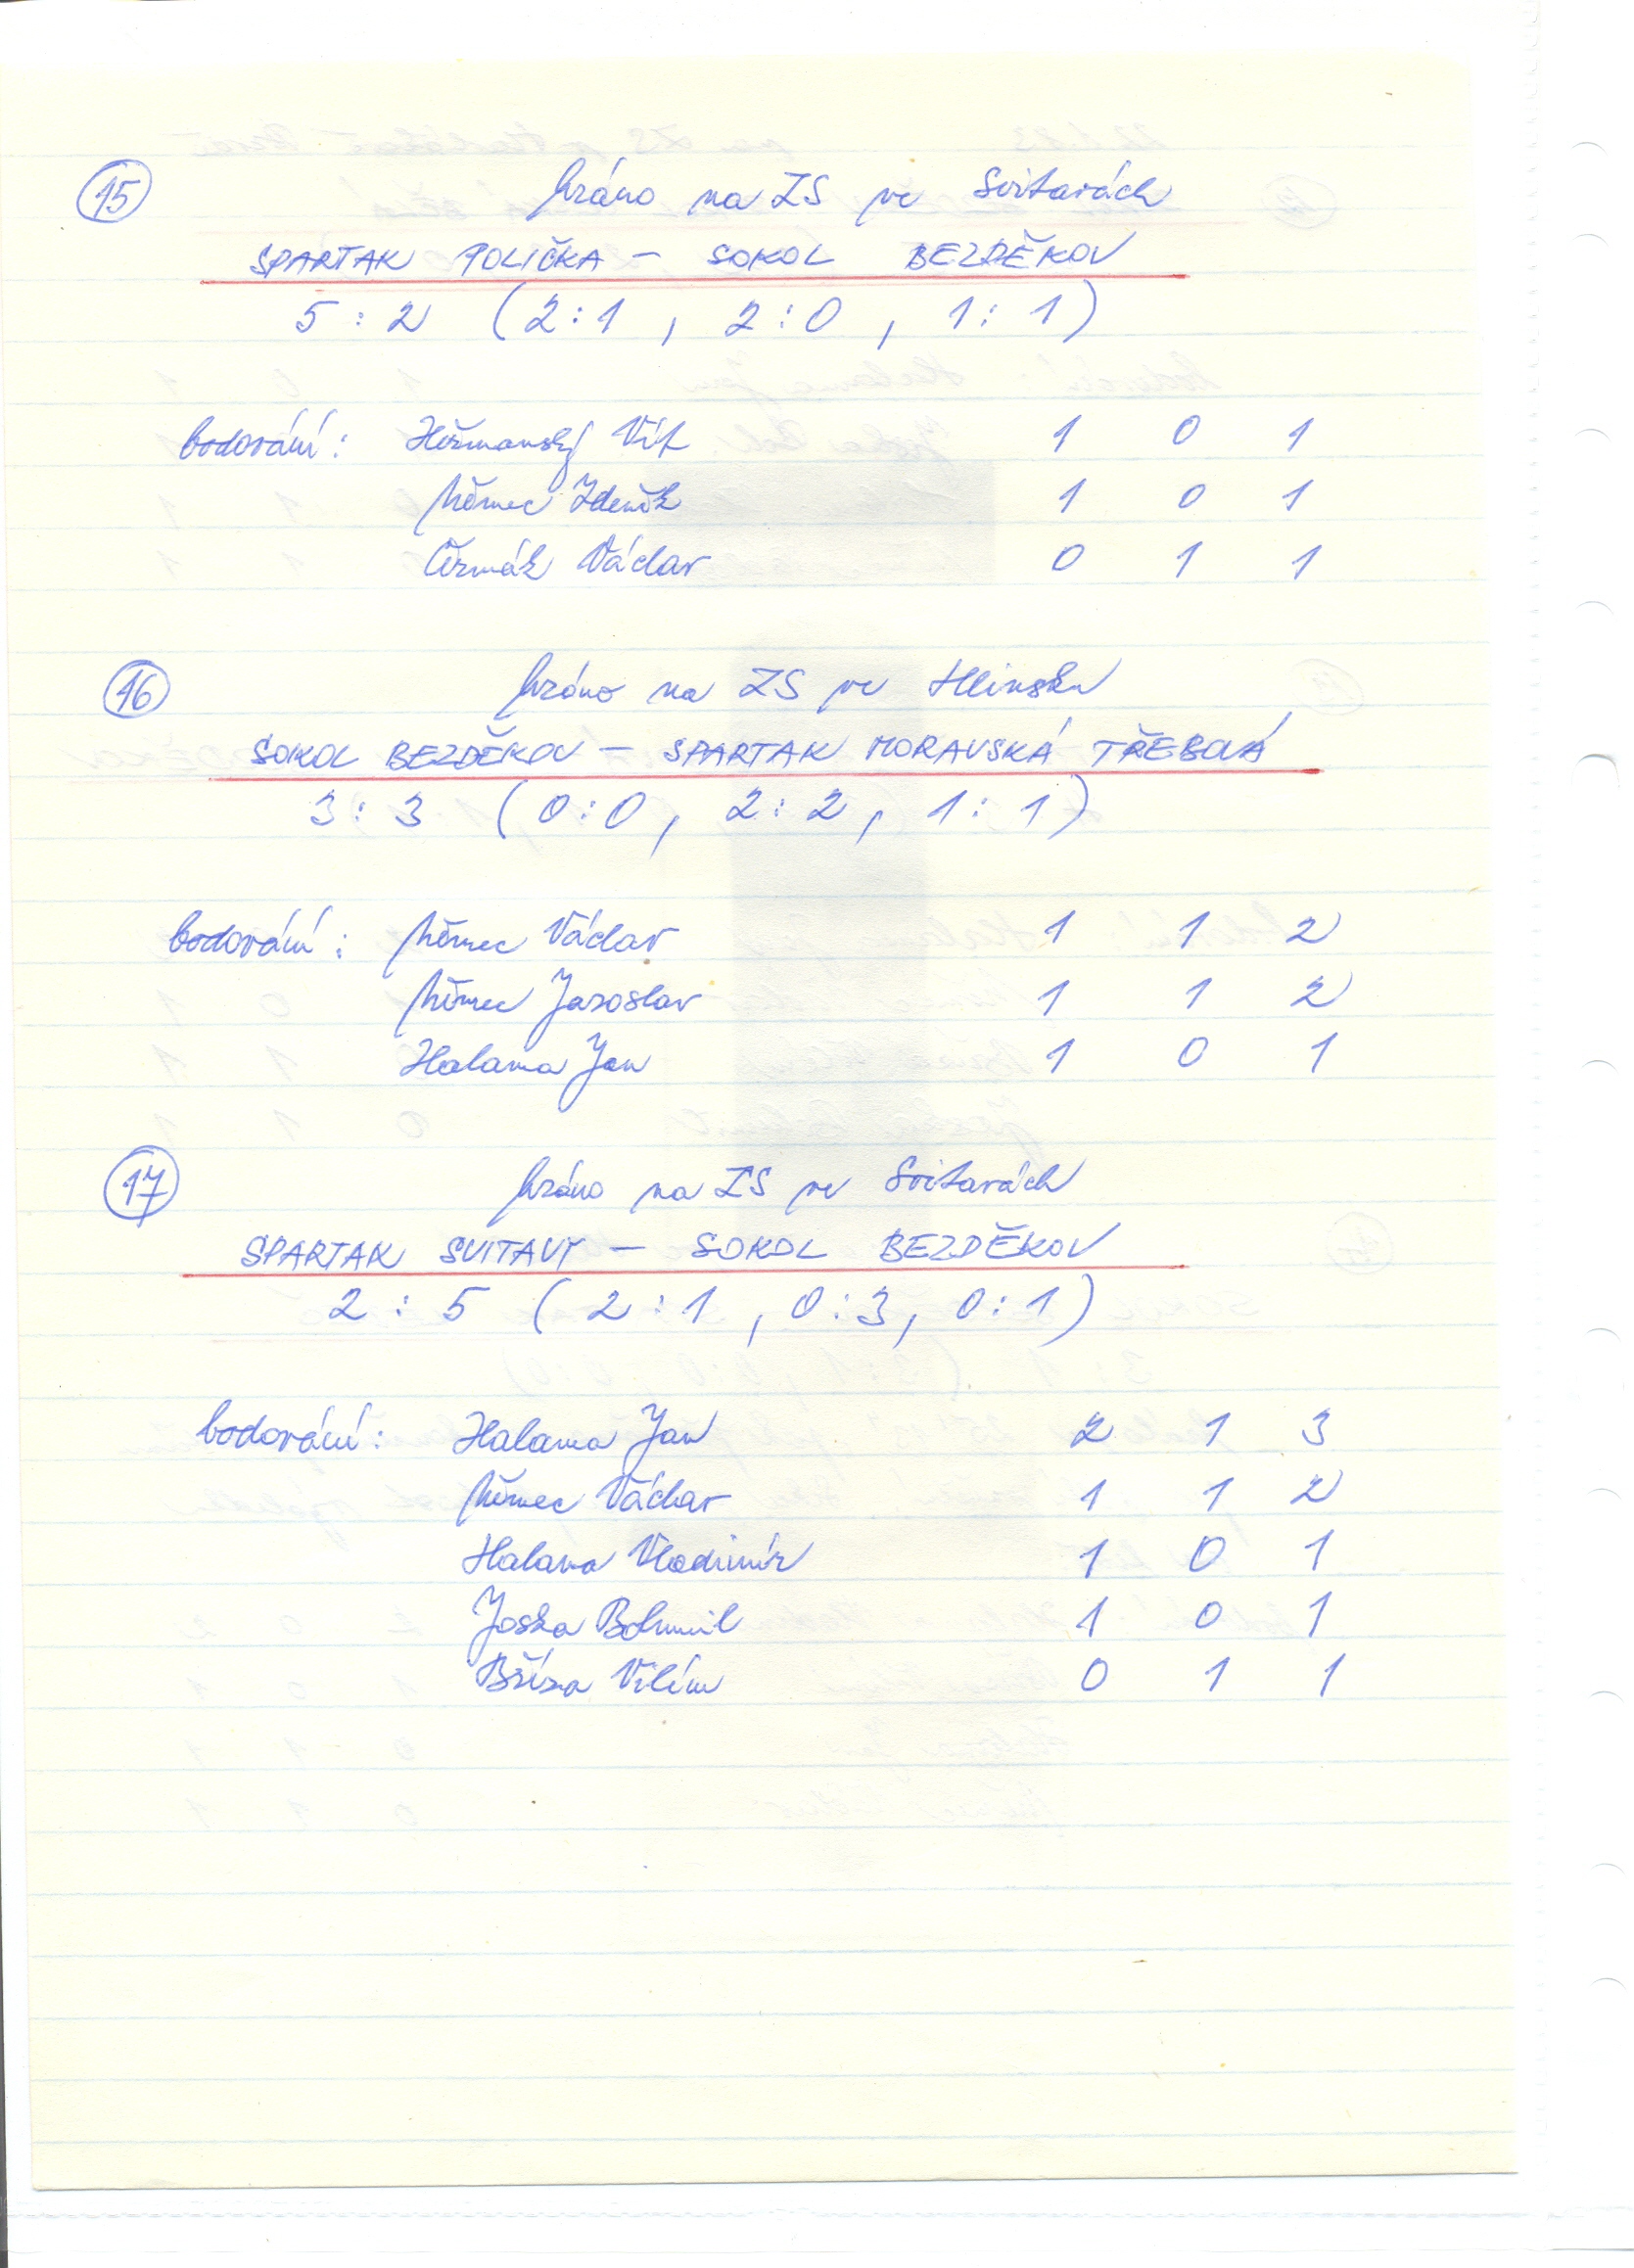 15 hráno na ZS ve Svitavách
SPARTAK POLIČKA – SOKOL BEZDĚKOV
5 : 2 (2:1, 2:0, 1:1)
bodování: Heřmanský Vít 1 0 1
Němec Zdeněk 1 0 1
Čermák Václav 0 1 1
16 hráno na ZS ve Hlinsku
SOKOL BEZDĚKOV – SPARTAK MORAVSKÁ TŘEBOVÁ
3 : 3 (0:0, 2:2, 1:1)
bodování: Němec Václav 1 1 2
Němec Jaroslav 1 1 2
Halama Jan 1 0 1
17 hráno na ZS ve Svitavách
SPARTAK SVITAVY – SOKOL BEZDĚKOV
2 : 5 (2:1, 0:3, 0:1)
bodování: Halama Jan 2 1 3
Němec Václav 1 1 2
Halama Vladimír 1 0 1
Joska Bohumil 1 0 1
Bříza Vilém 0 1 1